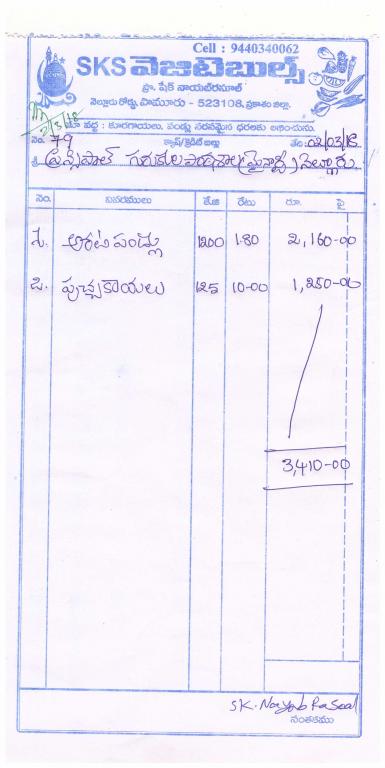 Cell : 9440340062
SKS వెజిటెబుల్స్
ప్రొ. షేక్ నాయబ్‌రసూల్
నెల్లూరు రోడ్డు, పామూరు - 523108, ప్రకాశం జిల్లా.
మా వద్ద : కూరగాయలు, పండ్లు సరసమైన ధరలకు లభించును.
2/3/18
నెం. 79 క్యాష్/క్రెడిట్ బిల్లు తేది: 02/03/18
శ్రీ ప్రిన్సిపాల్ గురుకుల పాఠశాల (మైనార్టీ) నెల్లూరు
నెం. వివరములు కే.జి రేటు రూ. పై
1. అరటి పండ్లు 1200 1.80 2,160-00
2. పుచ్చకాయలు 125 10-00 1,250-00
3,410-00
SK. Nayab Rasool
సంతకము